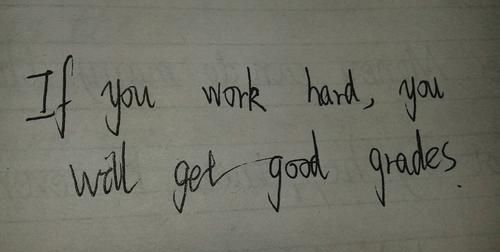 If you work hard, you
will get good grades.